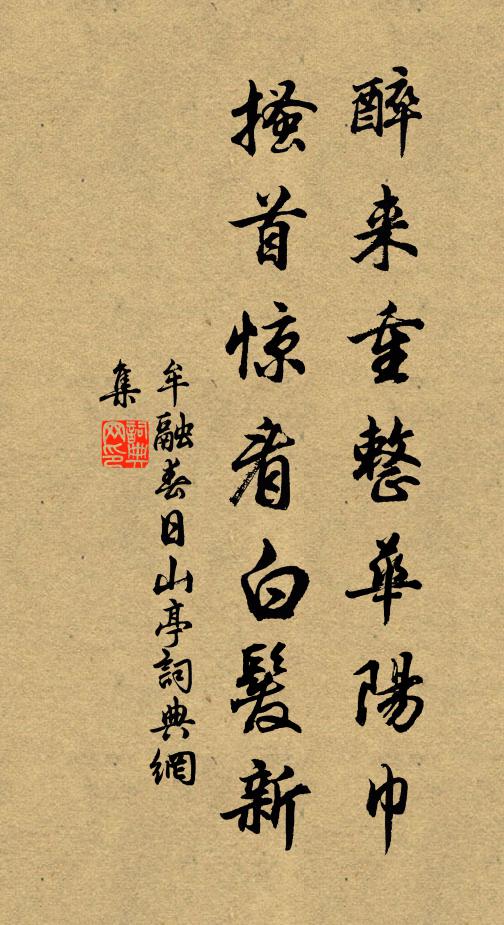 醉来重整華陽巾
搔首惊看白髮新
牟融春日山亭詞典網
集
詞典
网印